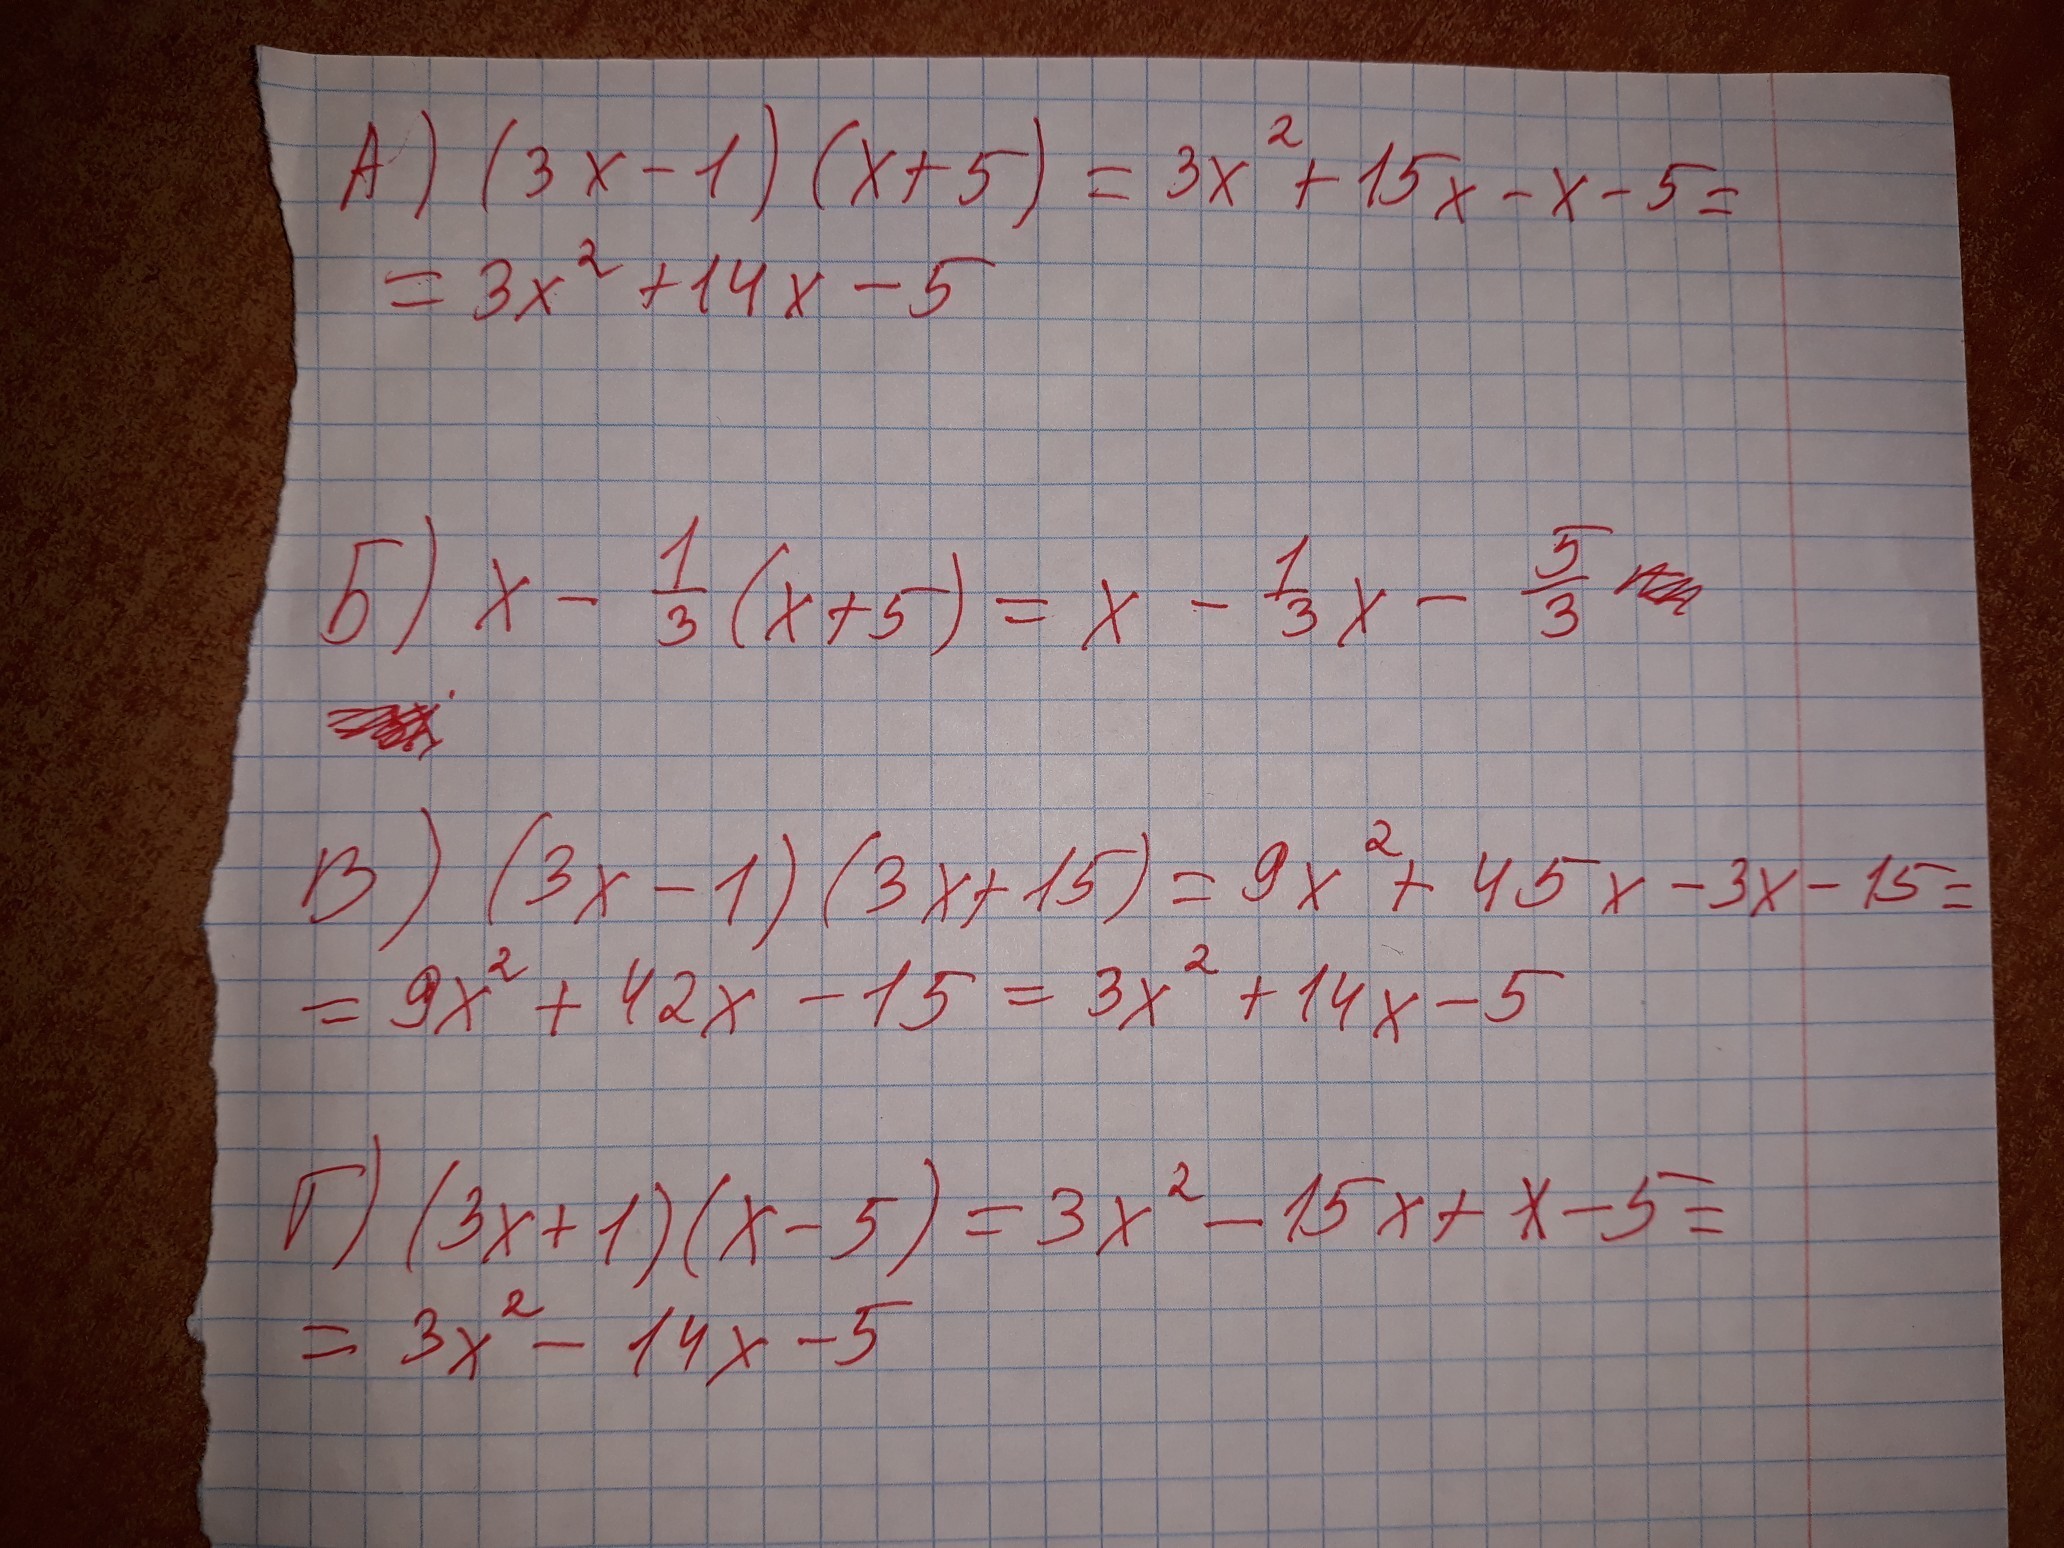 А) (3x-1)(x+5) = 3x²+15x-x-5=
= 3x²+14x-5
Б) x - 1/3(x+5) = x - 1/3x - 5/3
В) (3x-1)(3x+15) = 9x²+45x-3x-15=
= 9x²+42x-15 = 3x²+14x-5
Г) (3x+1)(x-5) = 3x²-15x+x-5=
= 3x²-14x-5